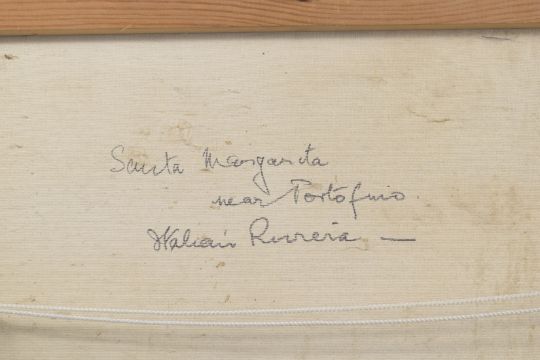 Santa Margarita
near Portofino.
Italian Riviera —